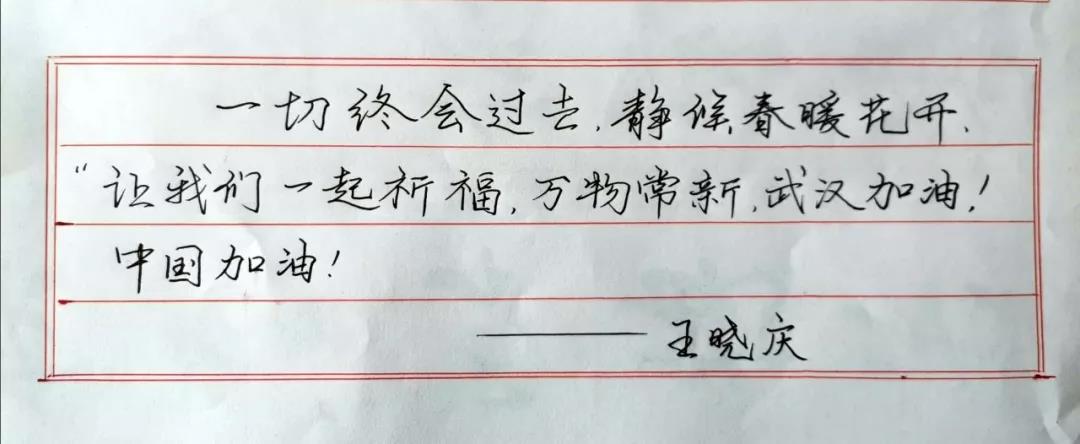 一切终会过去,静候春暖花开,
“让我们一起祈福,万物常新,武汉加油!
中国加油!
——王晓庆